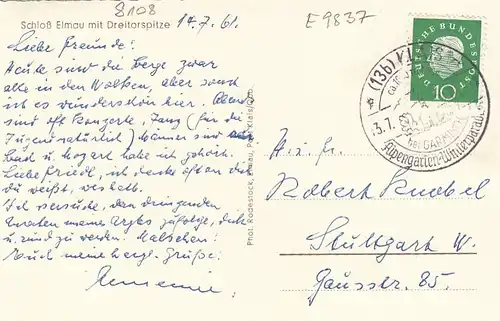 8108
E 9837
Schloß Elmau mit Dreitorspitze
14.7.61.
Liebe Freunde!
Heute sind die Berge zwar
alle in den Wolken, aber sonst
ist es wunderschön hier. Abends
sind oft Konzerte, Tanz (für die
Jugend natürlich)
Bad u. Mozart habe ich gehört.
Liebe Friedl, ich denke oft an dich
du weißt, weshalb.
Ich versuche, den dringenden
Raten meines Arztes zufolge, dick
u. rund zu werden!
Euch meine herzl. Grüße!
Phot. Rodestock, Elmau, Post Klais/Obb.
DEUTSCHE BUNDESPOST
10
(13b) KLAIS
Alpengarten-Winterparadies
An Fr.
Robert Knobel
Stuttgart W.
Gaussstr. 85.